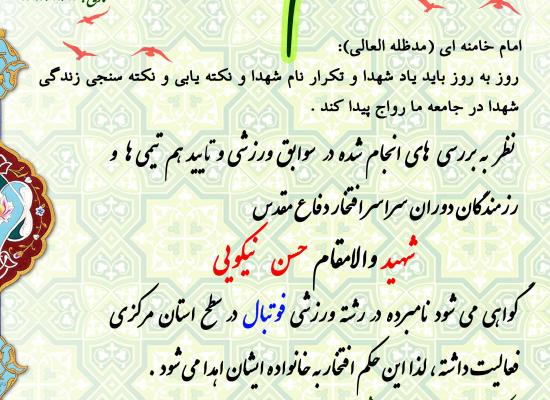 امام خامنه ای (مدظله العالی):
روز به روز باید یاد شهدا و تکرار نام شهدا و نکته یابی و نکته سنجی زندگی
شهدا در جامعه ما رواج پیدا کند .
نظر به بررسی های انجام شده در سوابق ورزشی و تایید هم تیمی ها و
رزمندگان دوران سراسر افتخار دفاع مقدس
شهید والامقام حسن نیکویی
گواهی می شود نامبرده در رشته ورزشی فوتبال در سطح استان مرکزی
فعالیت داشته ، لذا این حکم افتخار به خانواده ایشان اهدا می شود .